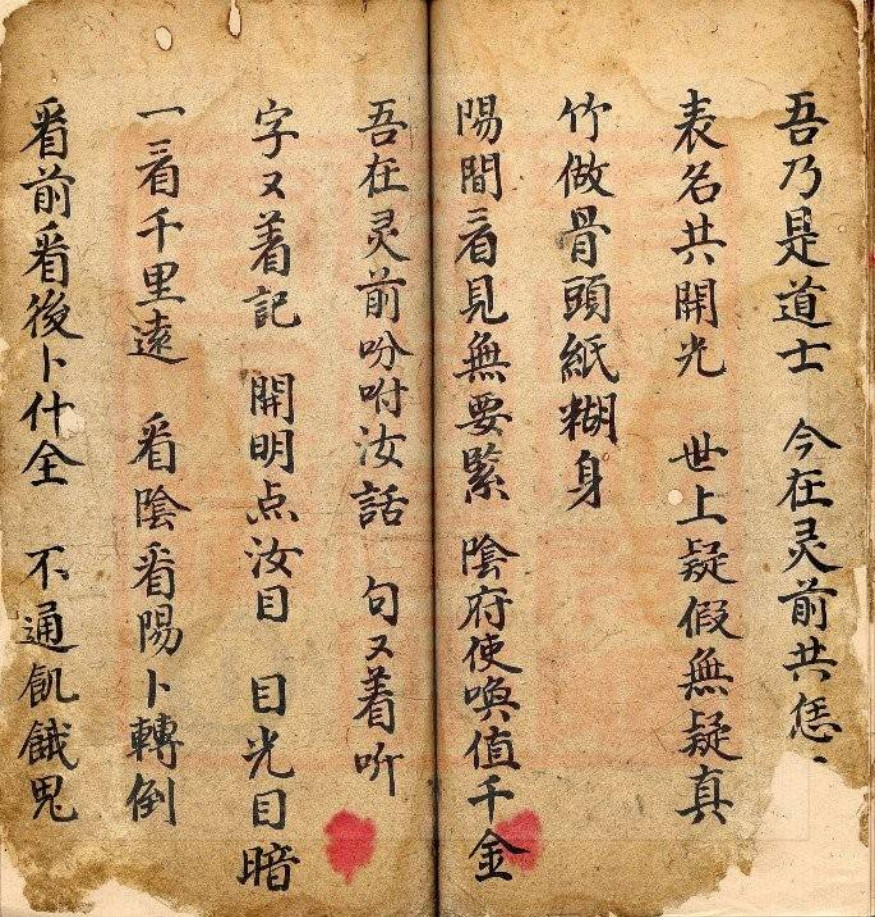 吾乃是道士　今在灵前共恁
表名共開光　世上疑假無疑真
竹做骨頭紙糊身
陽間看見無要緊　陰府使喚值千金
吾在灵前吩咐汝話　句又着听
字又着記　開明点汝目　目光目暗
一看千里遠　看陰看陽卜轉倒
看前看後卜什全　不通飢餓鬼